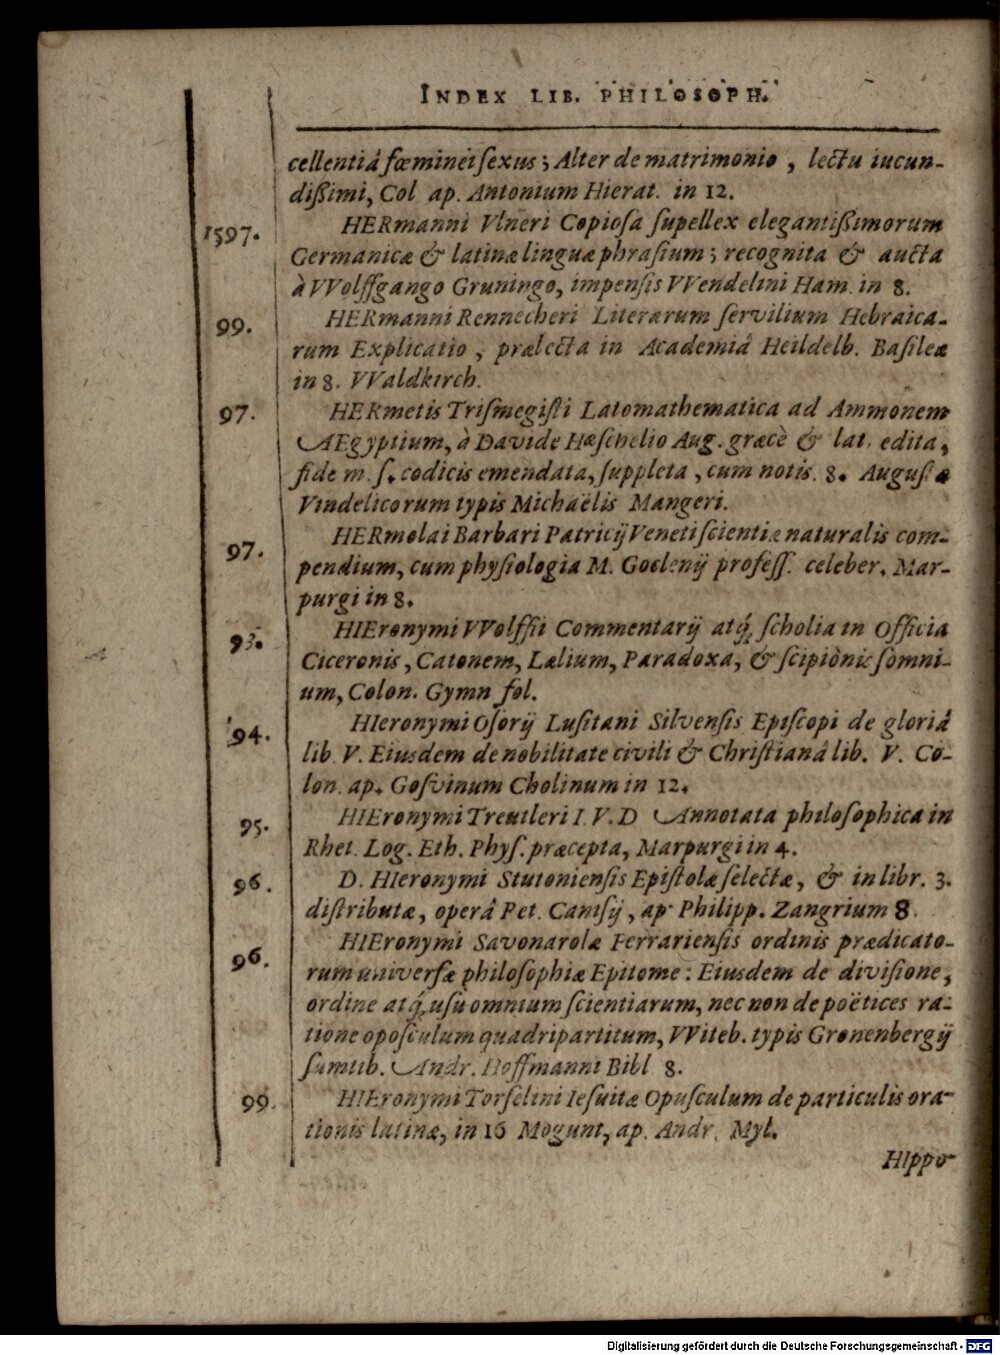 INDEX LIB. PHILOSOPH.
cellentiâ fœminei ſexus; Alter de matrimonio, lectu iucun-
dißimi, Col ap. Antonium Hierat. in 12.
1597. HERmanni Vlneri Copioſa ſupellex elegantißimorum
Germanicæ & latinæ linguæ phraſium; recognita & aucta
à VVolffgango Gruningo, impenſis VVendelini Ham. in 8.
99. HERmanni Rennecheri Literarum ſervilium Hebraica-
rum Explicatio, prælecta in Academiâ Heildelb. Baſileæ
in 8. VValdkirch.
97. HERmetis Triſmegiſti Latomathematica ad Ammonem
AEgyptium, à Davide Hæſchelio Aug. græcè & lat. edita,
fide m. ſ. codicis emendata, ſuppleta, cum notis. 8. Auguſtæ
Vindelicorum typis Michaëlis Mangeri.
97. HERmolai Barbari Patricij Veneti ſcientiæ naturalis com-
pendium, cum phyſiologia M. Goclenij profeſſ. celeber. Mar-
purgi in 8.
93. HIEronymi VVolffii Commentarij atq́; ſcholia in Officia
Ciceronis, Catonem, Lælium, Paradoxa, & ſcipionis ſomni-
um, Colon. Gymn fol.
94. HIeronymi Oſorij Luſitani Silvenſis Epiſcopi de gloriâ
lib. V. Eiusdem de nobilitate civili & Chriſtianâ lib. V. Co-
lon. ap. Goſvinum Cholinum in 12.
95. HIEronymi Treutleri I. V. D Annotata philoſophica in
Rhet. Log. Eth. Phyſ. præcepta, Marpurgi in 4.
96. D. HIeronymi Stutonienſis Epiſtolæ ſelectæ, & in libr. 3.
diſtributæ, operâ Pet. Caniſij, ap. Philipp. Zangrium 8.
96. HIEronymi Savonarolæ Ferrarienſis ordinis prædicato-
rum univerſæ philoſophiæ Epitome: Eiusdem de diviſione,
ordine atq́; uſu omnium ſcientiarum, nec non de poëtices ra-
tione opoſculum quadripartitum, VViteb. typis Gronenbergij
ſumtib. Andr. Hoffmanni Bibl 8.
99. HIEronymi Torſelini Ieſuitæ Opuſculum de particulis ora-
tionis latinæ, in 16 Mogunt, ap. Andr. Myl.
HIppo-
Digitalisierung gefördert durch die Deutsche Forschungsgemeinschaft - DFG